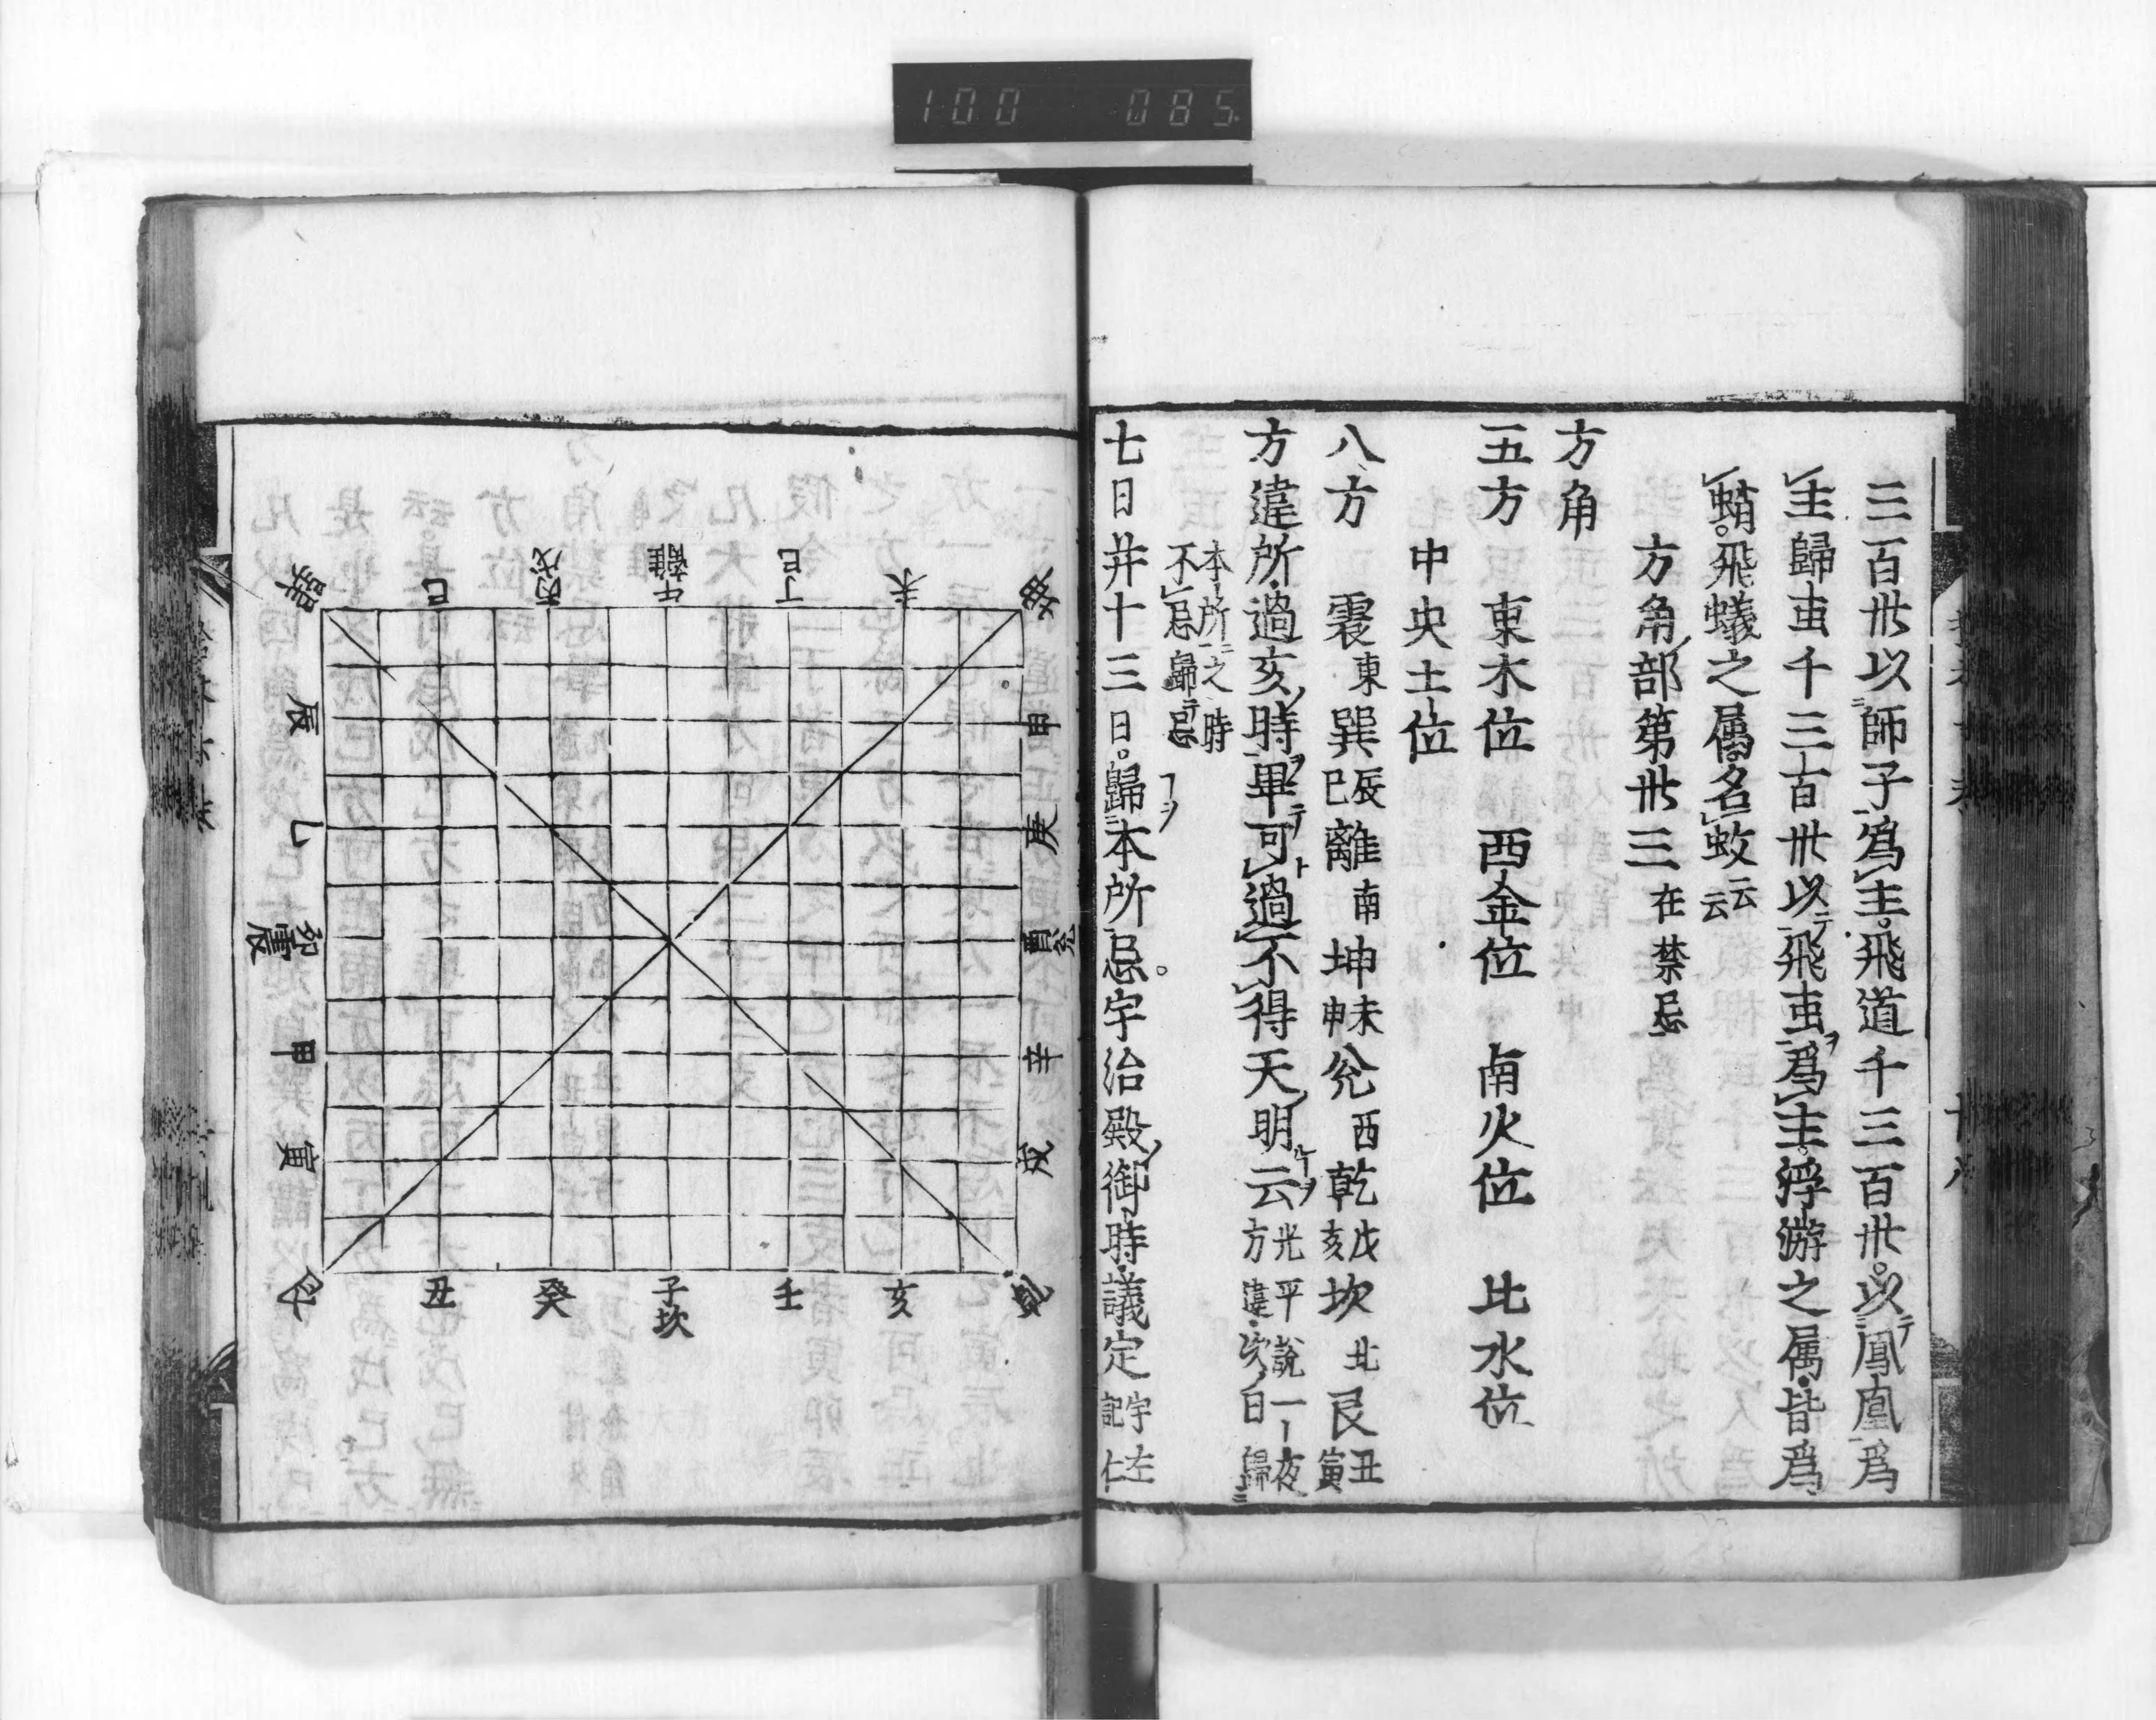 100 085
三百卅以師子爲主飛道千三百卅以鳳凰爲
主歸䖝千三百卅以飛䖝爲主浮游之属皆爲
蛸飛蟻之属名蚊云云
方角部第卅三在禁忌
方角
五方 東木位 西金位 南火位 北水位
中央土位
八方 震東巽辰巳離南坤未申兊西乾戌亥坎北艮丑寅
方違所過亥時畢可過不得天明云光平説一夜方違次白歸
本所之時
不忌歸忌
七日并十三日歸本所忌宇治殿御時議定宇左記仁
坤
未
丁巳
午離
丙戊
巳
巽
申
庚
酉兊
辛
戌
辰
乙
卯震辰
甲
寅
乾
亥
壬
子坎
癸
丑
艮